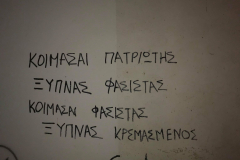 ΚΟΙΜΑΣΑΙ ΠΑΤΡΙΩΤΗΣ
ΞΥΠΝΑΣ ΦΑΣΙΣΤΑΣ
ΚΟΙΜΑΣΑΙ ΦΑΣΙΣΤΑΣ
ΞΥΠΝΑΣ ΚΡΕΜΑΣΜΕΝΟΣ